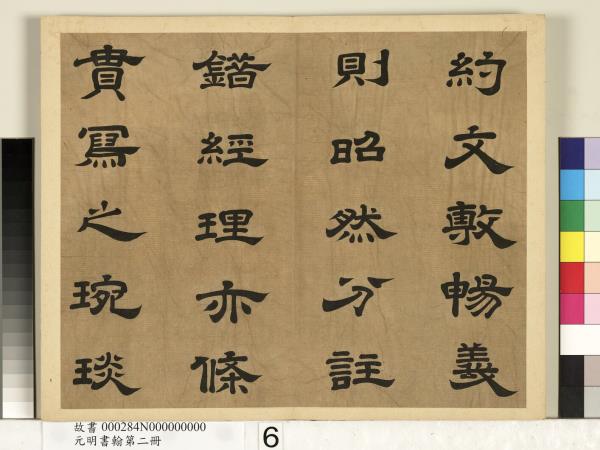 約文敷暢義
則昭然分註
錯經理亦條
貫寫之琬琰
故書 000284N000000000
元明書翰第二冊
6